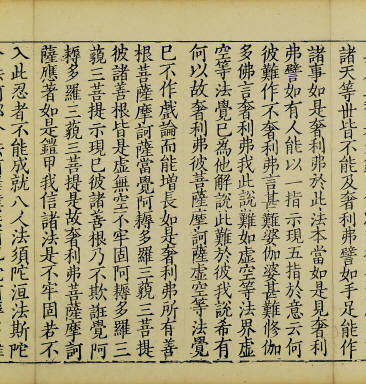 諸天等世皆不能及奢利弗譬如手足能作
諸事如是奢利弗於此法本當如是見奢利
弗譬如有人能以一指示現五指於意云何
彼難作不奢利弗言甚難婆伽婆甚難修伽
多佛言奢利弗我此說難如虛空等法界虛
空等法覺已為他解說此難於彼我說希有
何以故奢利弗彼菩薩摩訶薩虛空等法覺
已不作戲論而能增長如是奢利弗所有善
根菩薩摩訶薩當覺阿耨多羅三藐三菩提
彼諸善根皆是虛無空不牢固阿耨多羅三
藐三菩提示現已彼諸善根乃不欺誑覺阿
耨多羅三藐三菩提是故奢利弗菩薩摩訶
薩應著如是鎧甲我信諸法是不牢固若不
入此忍者不能成就八人法須陀洹法斯陀